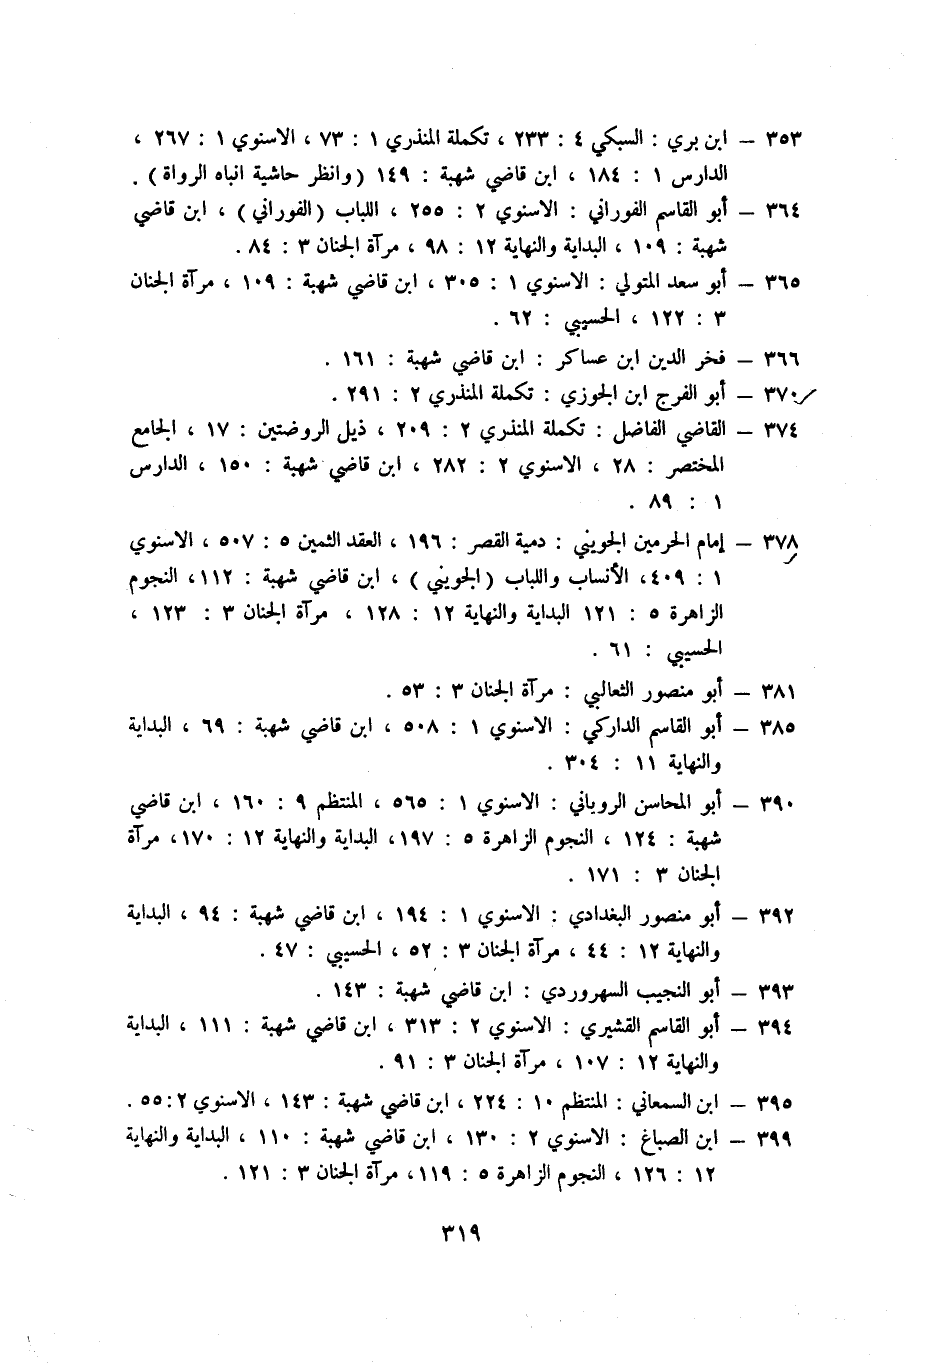 ٣٥٣ – ابن بري : السبكي ٤ : ٢٣٣ ، تكملة المنذري ١ : ٧٣ ، الاسنوي ١ : ٢٦٧ ،
الدارس ١ : ١٨٤ ، ابن قاضي شهبة : ١٤٩ (وانظر حاشية انباه الرواة) .
٣٦٤ – أبو القاسم الفوراني : الاسنوي ٢ : ٢٥٥ ، اللباب (الفوراني) ، ابن قاضي
شهبة : ١٠٩ ، البداية والنهاية ١٢ : ٩٨ ، مرآة الجنان ٣ : ٨٤ .
٣٦٥ – أبو سعد المتولي : الاسنوي ١ : ٣٠٥ ، ابن قاضي شهبة : ١٠٩ ، مرآة الجنان
٣ : ١٢٢ ، الحسيبي : ٦٢ .
٣٦٦ – فخر الدين ابن عساكر : ابن قاضي شهبة : ١٦١ .
٣٧٠ – أبو الفرج ابن الجوزي : تكملة المنذري ٢ : ٢٩١ .
٣٧٤ – القاضي الفاضل : تكملة المنذري ٢ : ٢٠٩ ، ذيل الروضتين : ١٧ ، الجامع
المختصر : ٢٨ ، الاسنوي ٢ : ٢٨٢ ، ابن قاضي شهبة : ١٥٠ ، الدارس
١ : ٨٩ .
٣٧٨ – إمام الحرمين الجويني : دمية القصر : ١٩٦ ، العقد الثمين ٥ : ٥٠٧ ، الاسنوي
١ : ٤٠٩، الأنساب واللباب (الجويني) ، ابن قاضي شهبة : ١١٢، النجوم
الزاهرة ٥ : ١٢١ البداية والنهاية ١٢ : ١٢٨ ، مرآة الجنان ٣ : ١٢٣ ،
الحسيبي : ٦١ .
٣٨١ – أبو منصور الثعالبي : مرآة الجنان ٣ : ٥٣ .
٣٨٥ – أبو القاسم الداركي : الاسنوي ١ : ٥٠٨ ، ابن قاضي شهبة : ٦٩ ، البداية
والنهاية ١١ : ٣٠٤ .
٣٩٠ – أبو المحاسن الروياني : الاسنوي ١ : ٥٦٥ ، المنتظم ٩ : ١٦٠ ، ابن قاضي
شهبة : ١٢٤ ، النجوم الزاهرة ٥ : ١٩٧، البداية والنهاية ١٢ : ١٧٠، مرآة
الجنان ٣ : ١٧١ .
٣٩٢ – أبو منصور البغدادي : الاسنوي ١ : ١٩٤ ، ابن قاضي شهبة : ٩٤ ، البداية
والنهاية ١٢ : ٤٤ ، مرآة الجنان ٣ : ٥٢ ، الحسيبي : ٤٧ .
٣٩٣ – أبو النجيب السهروردي : ابن قاضي شهبة : ١٤٣ .
٣٩٤ – أبو القاسم القشيري : الاسنوي ٢ : ٣١٣ ، ابن قاضي شهبة : ١١١ ، البداية
والنهاية ١٢ : ١٠٧ ، مرآة الجنان ٣ : ٩١ .
٣٩٥ – ابن السمعاني : المنتظم ١٠ : ٢٢٤ ، ابن قاضي شهبة : ١٤٣ ، الاسنوي ٢ : ٥٥ .
٣٩٩ – ابن الصباغ : الاسنوي ٢ : ١٣٠ ، ابن قاضي شهبة : ١١٠ ، البداية والنهاية
١٢ : ١٢٦ ، النجوم الزاهرة ٥ : ١١٩، مرآة الجنان ٣ : ١٢١ .
٣١٩